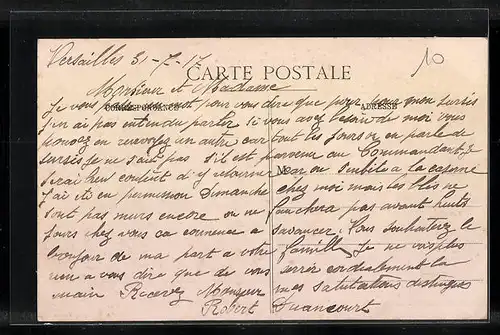 Versailles 31-7-17
10
CARTE POSTALE
Monsieur et Madame
CORRESPONDANCE
ADRESSE
Je vous pour vous dire que pour mon sursis
j'en ai pas entendu parler. Si vous avez besoin de moi vous
pouvez en renvoyez un autre car tout les jours on en parle de
sursis je ne sais pas s'il est parvenu au Commandant, je
serai heu content d'y retourner car on s'embête a la caserne
j'ai été en permission Dimanche chez moi mais les blés ne
sont pas murs encore on ne fauchera pas avant huits
jours chez vous ca commence a s'avancer. Vous souhaiterez le
bonjour de ma part a votre famille. Je ne vois plus
rien a vous dire que de vous serrer cordialement la
main Recevez Monsieur mes salutations distingués
Robert Duancourt